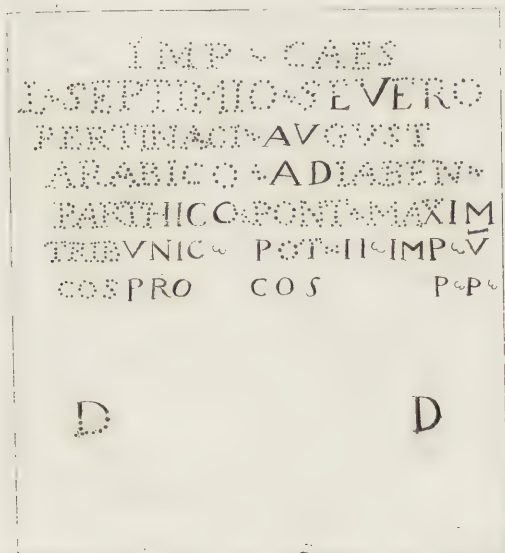 IMP CAES
L SEPTIMIO SEVERO
PERTINACI AVGVST
ARABICO ADIABEN
PARTHICO PONT MAXIM
TRIBVNIC POT II IMP V
COS PRO COS P P
D D